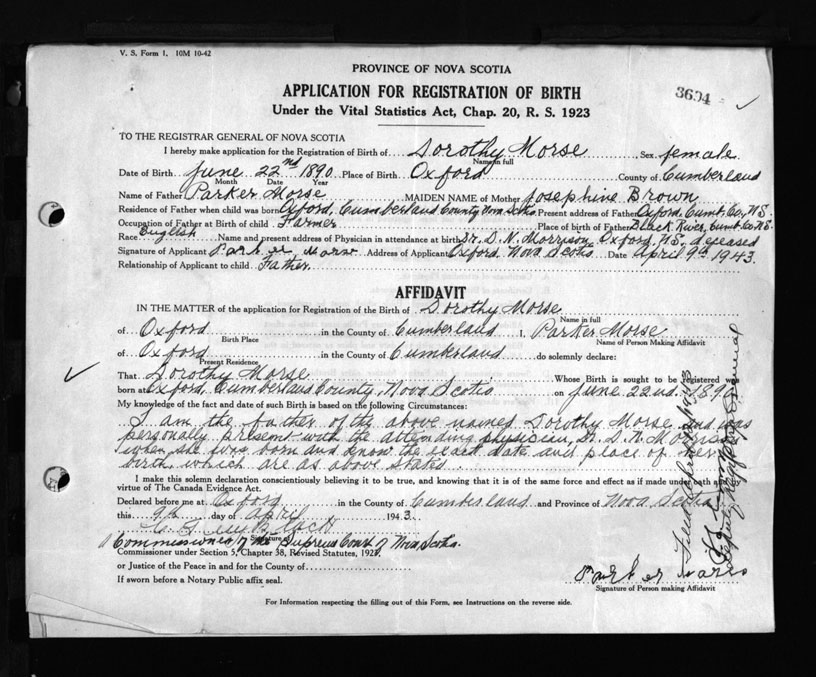 V. S. Form 1. 10M 10-42
PROVINCE OF NOVA SCOTIA
3604
APPLICATION FOR REGISTRATION OF BIRTH
Under the Vital Statistics Act, Chap. 20, R. S. 1923
TO THE REGISTRAR GENERAL OF NOVA SCOTIA
I hereby make application for the Registration of Birth of Dorothy Morse Sex female
Name in full
Date of Birth June 22nd 1890 Place of Birth Oxford County of Cumberland
Month Date Year
Name of Father Parker Morse MAIDEN NAME of Mother Josephine Brown
Residence of Father when child was born Oxford, Cumberland County, Nova Scotia Present address of Father Oxford, Cumb. Co., N.S.
Occupation of Father at Birth of child Farmer Place of birth of Father Black River, Cumb. Co. N.S.
Race English Name and present address of Physician in attendance at birth Dr. D. N. Morrison, Oxford, N.S. deceased
Signature of Applicant Parker Address of Applicant Oxford Nova Scotia Date April 9th 1943.
Relationship of Applicant to child Father
AFFIDAVIT
IN THE MATTER of the application for Registration of the Birth of Dorothy Morse
Name in full
of Oxford in the County of Cumberland I, Parker Morse
Birth Place Name of Person Making Affidavit
of Oxford in the County of Cumberland do solemnly declare:
Present Residence
That Dorothy Morse Whose Birth is sought to be registered was
born at Oxford, Cumberland County, Nova Scotia on June 22nd 1890
My knowledge of the fact and date of such Birth is based on the following Circumstances:
I am the father of the above named Dorothy Morse and was
personally present with the attending physician, Dr. D. N. Morrison
when she was born and know the exact date and place of her
birth which are as above stated.
I make this solemn declaration conscientiously believing it to be true, and knowing it is of the same force and effect as if made under oath by
virtue of The Canada Evidence Act.
Declared before me at Oxford in the County of Cumberland and Province of Nova Scotia
this 9th day of April 1943.
Signature
A Commissioner of the Supreme Court of Nova Scotia
Commissioner under Section 5, Chapter 38, Revised Statutes, 1923
or Justice of the Peace in and for the County of
If sworn before a Notary Public affix seal.
Parker
Signature of Person making Affidavit
For Information respecting the filling out of this Form, see Instructions on the reverse side.
Deputy Registrar General